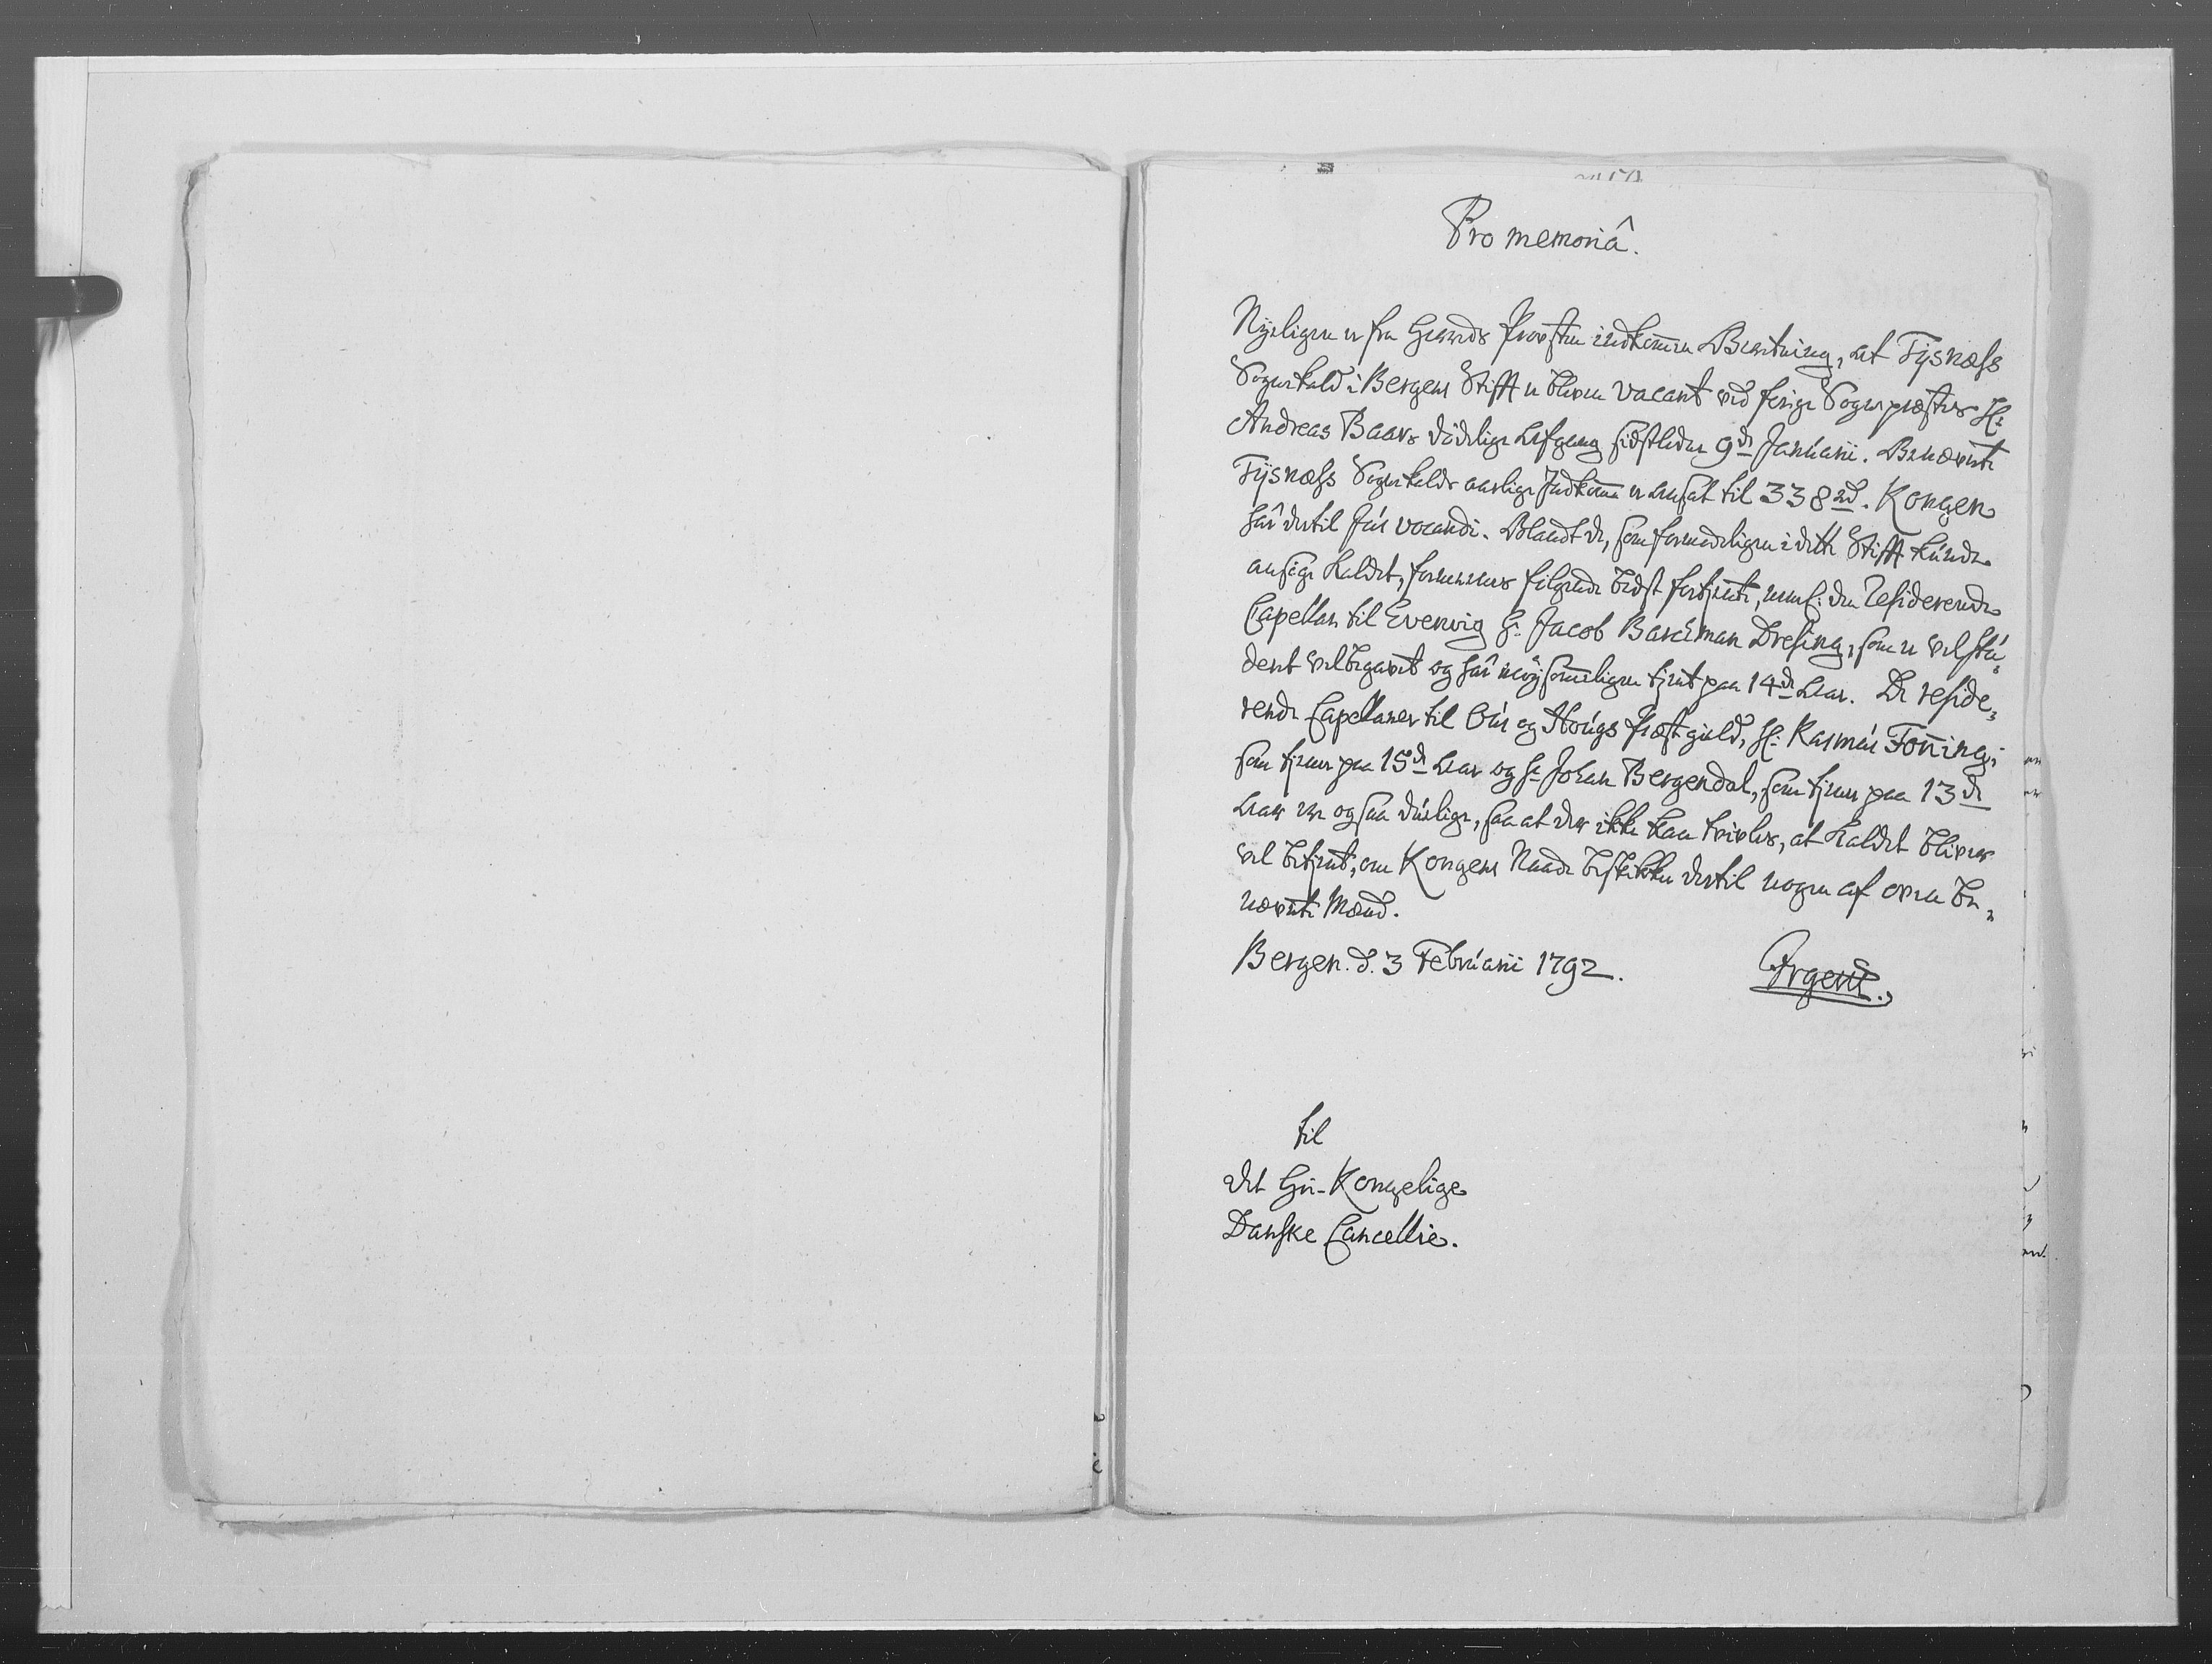 Pro memoriâ.
Nyeligen er fra Herreds Provsten indkom̅en Beretning, at Tysnæss
Sognekald i Bergens Stift er bleven vacant ved forige Sognepræstes Hr:
Andreas Baars dødelige Afgang sidstleden 9de Januarii. Benævnte
Tysnæss Sognekalds aarlige Indkom̅e er ansat til 338 rd. Kongen
har dertil Jus vocandi. Blandt de, som formodeligen i dette Stift kunde
ansøge Kaldet, formenes følgende bedst fortjente, neml: den Residerende
Capellan til Evenvig Hr. Jacob Barchman Dresing, som er vel stu-
deret velbegavet og har nøysom̅eligen tjent paa 14de Aar. De reside-
rende Capellaner til Ous og Hougs Præstegield, Hr: Rasmus Fon̅ing,
som tjener paa 15de Aar og Hr. Johan Bergendal, som tjener paa 13de
Aar ere ogsaa duelige, saa at der ikke kan tvivles, at Kaldet bliver
vel betjent, om Kongens Naade beskikker dertil nogen af oven be-
nævnte Mænd.
Bergen. d. 3 Februarii 1792.
Irgens.
til
det Høi-Kongelige
Danske Cancellie.